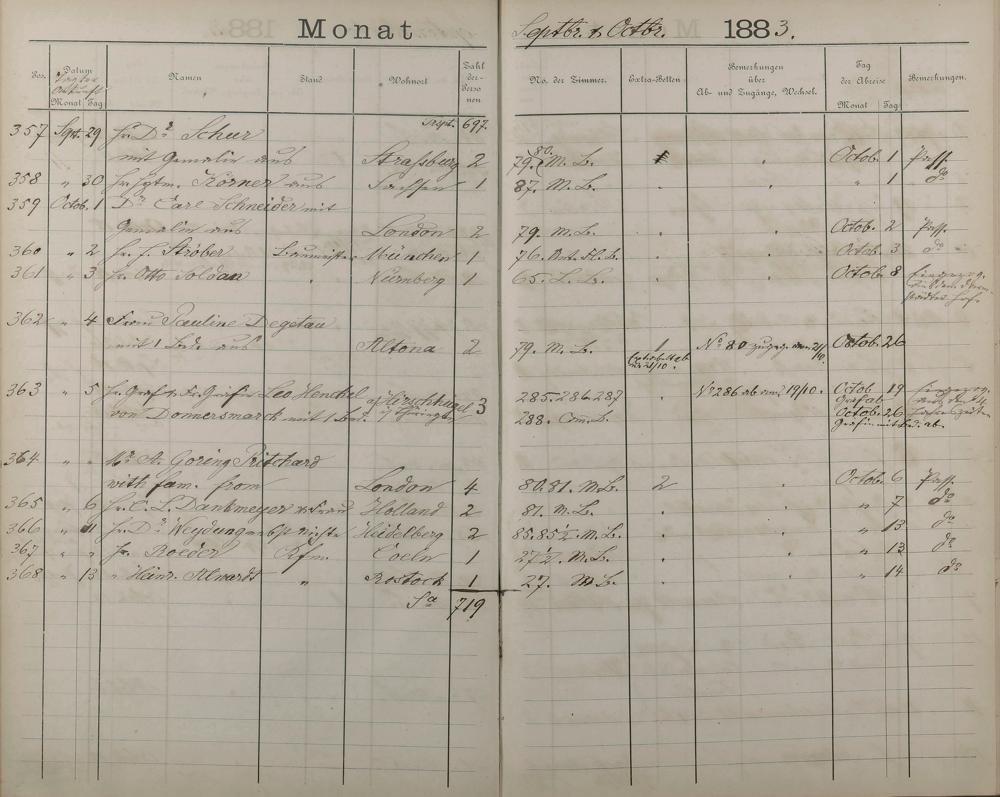 Monat Septbr. & Octbr. 1883.
Pos. Datum Namen Stand Wohnort Zahl der Perso nen No. der Zimmer. Extra-Betten Bemerkungen über Ab- und Zugänge, Wechsel. Tag der Abreise Bemerkungen.
Monat Tag Monat Tag
697.
357 Sept. 29 Hr. Dr. Scheer
mit Gemalin aus Straßburg 2 79. 80. M. L. Octob. 1 Pass.
358 " 30 Hr. Hptm. Körner aus Sachsen 1 87. M. L. " 1 do
359 Octob. 1 Dr. Carl Schneider mit
Gemalin aus London 2 79. M. L. Octob. 2 Pass.
360 " 2 Hr. F. Ströber Baumeister München 1 76. Octob. 3 do
361 " 3 Hr. Otto Soldan " Nürnberg 1 65. L. L. Octob. 8
362 " 4 Frau Pauline Degetau
mit 1 Bed. aus Altona 2 79. M. L. 1 No 80 Octob. 26
363 " 5 Hr. Graf u. Fr. Gräfin Leo Henckel 3 285. 286. 287 No 286 ab am 19/10. Octob. 19
von Donnersmarck mit 1 Bed. 288. Octob. 26
Gräfin mit Bed. ab.
364 " " Mr. A. Goring Pritchard
with fam. from London 4 80. 81. M. L. 2 Octob. 6 Pass.
365 " 6 Hr. C. L. Dankmeyer & Frau Holland 2 81. M. L. " 7 do
366 " 11 Hr. Dr. Weydung nebst Nichte Heidelberg 2 85. 85½. M. L. " 13 do
367 " " Hr. Roeder Kfm. Coeln 1 27½. M. L. " 13 do
368 " 13 " Heinr. Ahrardt " Rostock 1 27. M. L. " 14 do
Sa 719